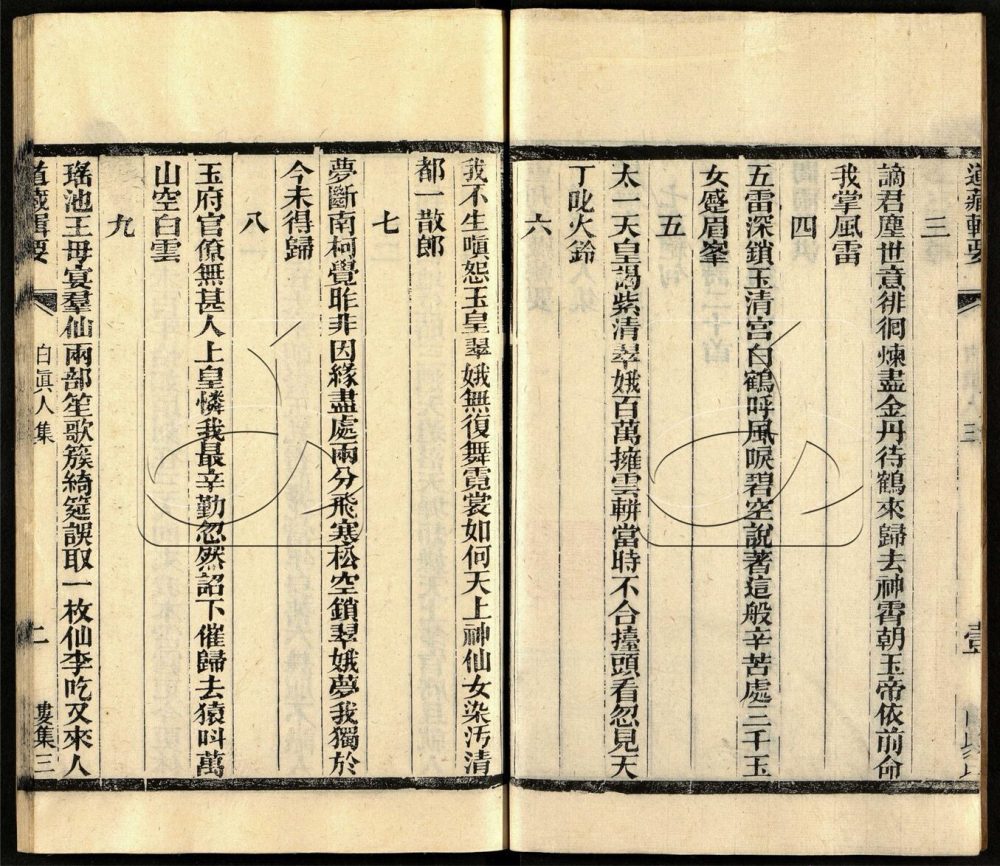 道藏輯要
三
謫君塵世意徘徊煉盡金丹待鶴來歸去神霄朝玉帝依前命
我掌風雷
四
五雷深鎖玉清宮白鶴呼風唳碧空說著這般辛苦處三千玉
女蹙眉峯
五
太一天皇謁紫清翠娥百萬擁雲軿當時不合擡頭看忽見天
丁叱火鈴
六
我不生嗔怨玉皇翠娥無復舞霓裳如何天上神仙女染汚清
都一散郎
七
夢斷南柯覺昨非因緣盡處兩分飛寒松空鎖翠娥夢我獨於
今未得歸
八
玉府官僚無甚人上皇憐我最辛勤忽然詔下催歸去猿叫萬
山空白雲
九
瑤池王母宴羣仙兩部笙歌簇綺筵誤取一枚仙李吃又來人
道藏輯要 白眞人集 二 婁集三